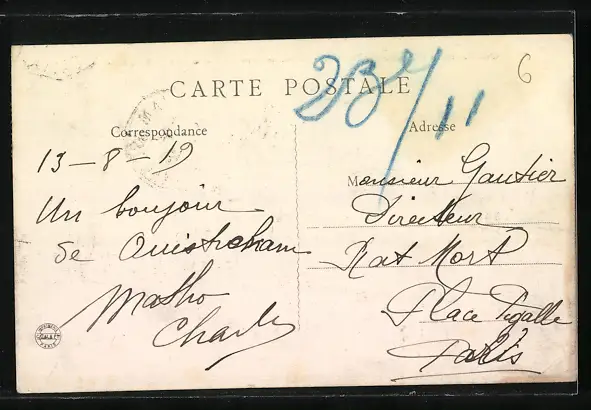 CARTE POSTALE
Correspondance
13-8-19
Un bonjour
de Ouistreham
Charles
Adresse
Monsieur Gautier
Directeur
Rat Mort
Place Pigalle
Paris
6